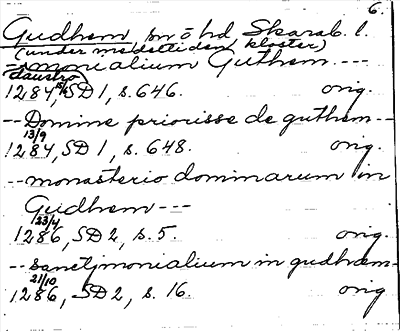 6.
Gudhem, sn o hd, Skarab. l.
(under medeltiden kloster)
-- monialium Guthem. ---
claustro
1284 15/5, SD 1, s. 646. orig.
-- Domine priorisse de guthem --
1284 13/9, SD 1, s. 648. orig.
-- monasterio dominarum in
Gudhem ---
1286 23/4, SD 2, s. 5. orig.
-- sanctimonialium in gudhæm --
1286 21/10, SD 2, s. 16. orig